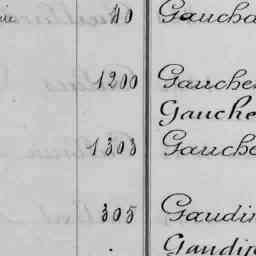 40 Gaucha
1200 Gauche
Gauche
1303 Gauche
305 Gaudi
Gaudi